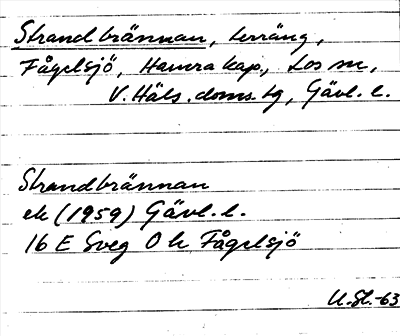 Strandbrännan, terräng,
Fågelsjö, Hamra kap., Los sn,
V. Häls. doms. tg, Gävl. l.
Strandbrännan
ek (1959) Gävl. l.
16 E Sveg O h Fågelsjö
U.St.-63